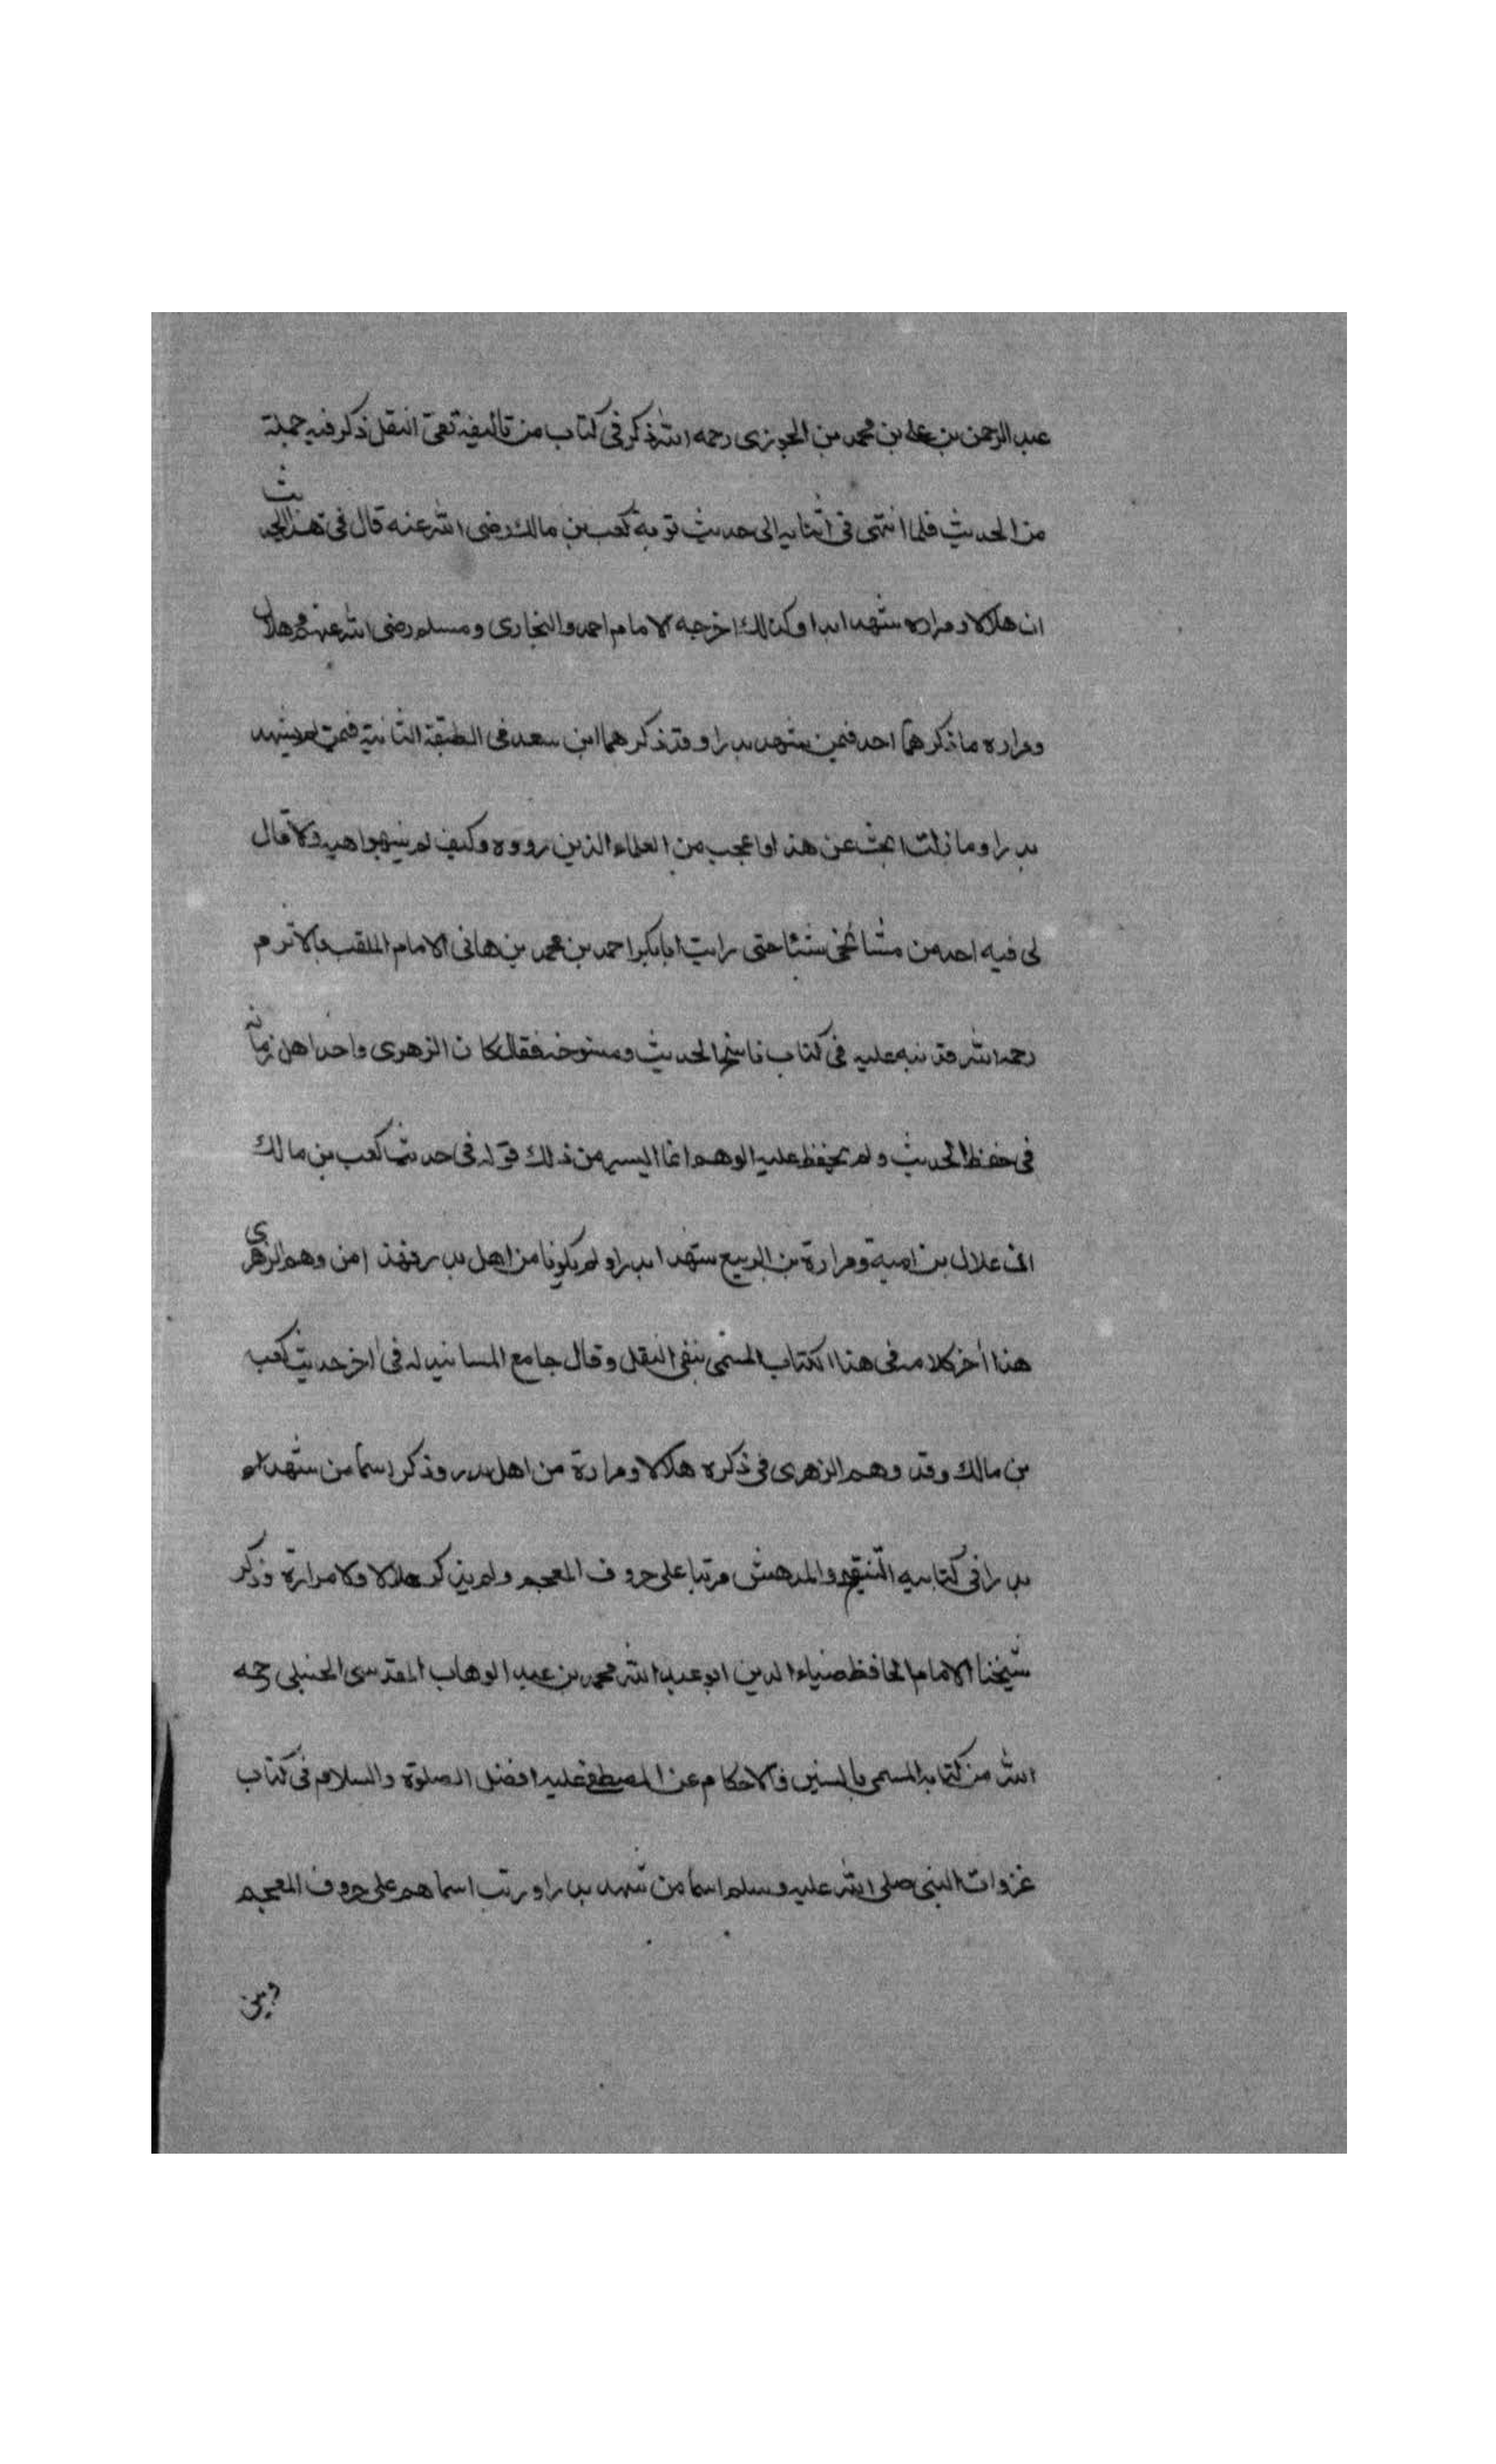 عبد الرحمن بن علي بن محمد بن الجوزى رحمه الله ذكر في كتاب من تاليفه نفى النقل ذكر فيه جملة
من الحديث فلما انتهى فى اثنايه الى حديث توبة كعب بن مالك رضى الله عنه قال فى هذا الحديث
ان هلالا ومراره شهدا بدرا وكذلك اخرجه الامام احمد والبخارى ومسلم رضى الله عنهم وهلال
ومراره ما ذكرهما احد فيمن شهد بدرا وقد ذكرهما ابن سعد فى الطبقة الثانية فيمن لم يشهد
بدرا وما زلت ابحث عن هذا واعجب من العلماء الذين رووه وكيف لم ينبهوا عليه ولا قال
لى فيه احد من مشائخى شيئا حتى رايت ابا بكر احمد بن محمد بن هانى الامام الملقب بالاثرم
رحمه الله قد نبه عليه فى كتاب ناسخ الحديث ومنسوخه فقال كان الزهرى واحد اهل زمانه
فى حفظ الحديث ولم يحفظ عليه الوهم انما اليسير من ذلك قوله فى حديث كعب بن مالك
ان علال بن امية ومرارة بن الربيع شهدا بدرا ولم يكونا من اهل بدر فهذا من وهم الزهرى
هذا اخر كلامه فى هذا الكتاب المسمى بنفى النقل وقال جامع المسانيد له فى اخر حديث كعب
بن مالك وقد وهم الزهرى فى ذكره هلالا ومرارة من اهل بدر وذكر اسما من شهد
بدرا فى كتابيه التنقيح والمدهش مرتبا على حروف المعجم ولم يذكر هلالا ولا مرارة وذكر
شيخنا الامام الحافظ ضياء الدين ابو عبد الله محمد بن عبد الوهاب المقدسى الحنبلى رحمه
الله من كتابه المسمى بالسنن والاحكام عن المصطفى عليه افضل الصلوة والسلام فى كتاب
غزوات النبى صلى الله عليه وسلم اسما من شهد بدرا ورتب اسماهم على حروف المعجم